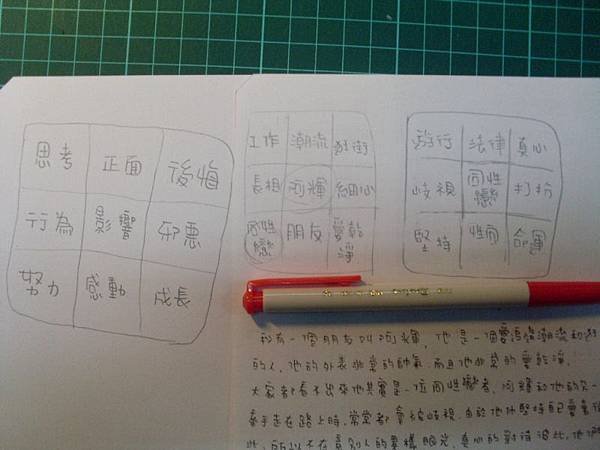 思考 正面 後悔
行為 影響 邪惡
努力 感動 成長
工作 潮流 逛街
長相 阿輝 細心
同性戀 朋友 愛乾淨
遊行 法律 真心
歧視 同性戀 打扮
堅持 性向 命運
我有一個朋友叫阿輝,他是一個愛追求潮流
的人,他的外表非常的帥氣,而且他非常的愛乾淨,
大家都看不出來他其實是一位同性戀者,阿輝和他的另一
牽手走在路上時,常常都會被歧視,由於他們堅持
此,所以不在意別人的異樣眼光,真心的對待彼此,他